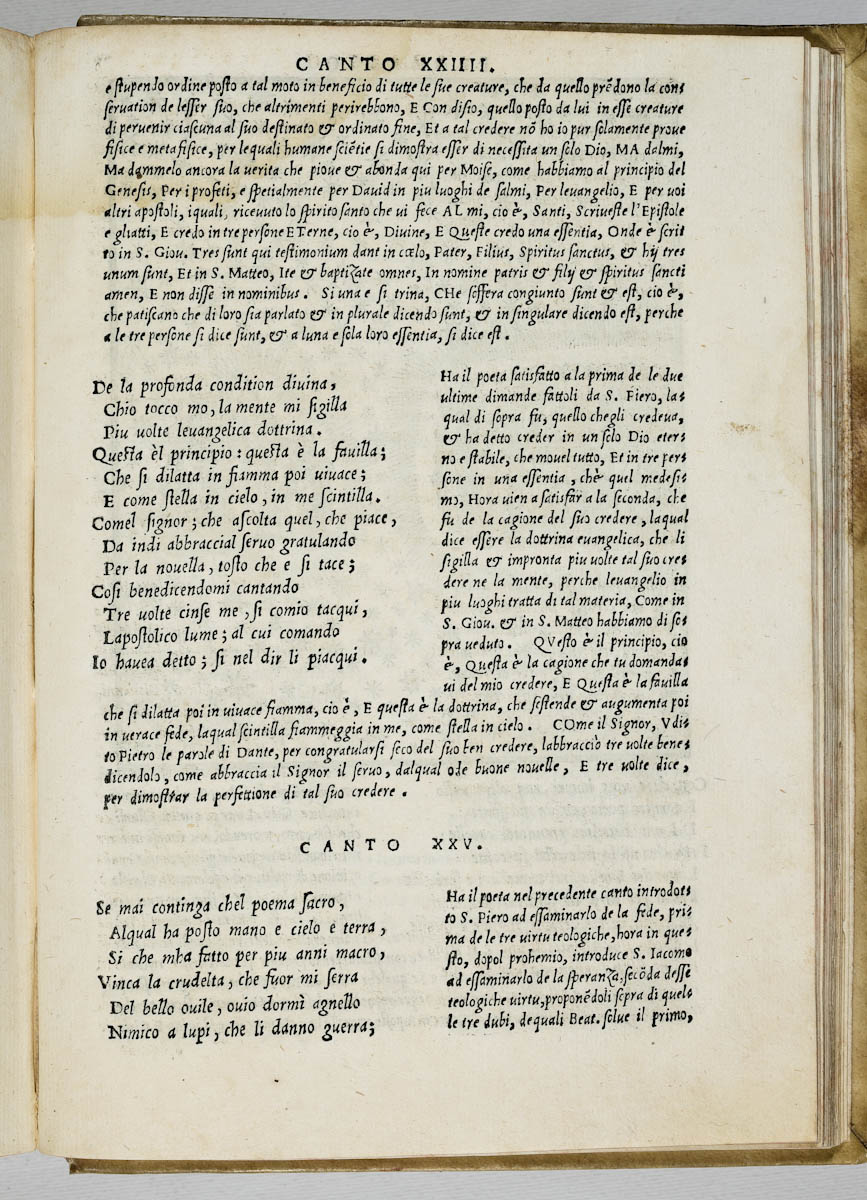 CANTO XXIIII.
e stupendo ordine posto a tal moto in beneficio di tutte le sue creature, che da quello prēdono la con⸗
seruation de lesser suo, che altrimenti perirebbono, E Con disio, quello posto da lui in esse creature
di peruenir ciascuna al suo destinato & ordinato fine, Et a tal credere nō ho io pur solamente proue
fisice e metafisice, per lequali humane sciētie si dimostra esser di necessita un solo Dio, MA dalmi,
Ma dammelo ancora la verita che pioue & abonda qui per Moise, come habbiamo al principio del
Genesis, Per i profeti, e spetialmente per Dauid in piu luoghi de salmi, Per leuangelio, E per voi
altri apostoli, iquali, riceuuto lo spirito santo che ui fece AL mi, cio è, Santi, Scriueste l'Epistole
e gliatti, E credo in tre persone ETerne, cio è, Diuine, E Queste credo una essentia, Onde è scrit
to in S. Giou. Tres sunt qui testimonium dant in cœlo, Pater, Filius, Spiritus sanctus, & hij tres
unum sunt, Et in S. Matteo, Ite & baptizate omnes, In nomine patris & filij & spiritus sancti
amen, E non disse in nominibus. Si una e si trina, CHe sofferа congiunto sunt & est, cio è,
che patiscano che di loro sia parlato & in plurale dicendo sunt, & in singulare dicendo est, perche
a le tre persone si dice sunt, & a luna e sola loro essentia, si dice est.
De la profonda condition diuina,
Chio tocco mo, la mente mi sigilla
Piu volte leuangelica dottrina.
Questa èl principio: questa è la fauilla;
Che si dilatta in fiamma poi viuace;
E come stella in cielo, in me scintilla.
Comel signor; che ascolta quel, che piace,
Da indi abbraccial seruo gratulando
Per la nouella, tosto che e si tace;
Cosi benedicendomi cantando
Tre volte cinse me, si comio tacqui,
Lapostolico lume; al cui comando
Io hauea detto; si nel dir li piacqui.
Ha il poeta satisfatto a la prima de le due
ultime dimande fattoli da S. Piero, la⸗
qual di sopra fu, quello chegli credeua,
& ha detto creder in un solo Dio eter⸗
no e stabile, che mouel tutto, Et in tre per⸗
sone in una essentia, chè quel medesi⸗
mo, Hora uien a satisfar a la seconda, che
fu de la cagione del suo credere, laqual
dice essere la dottrina euangelica, che li
sigilla & impronta piu volte tal suo cre⸗
dere ne la mente, perche leuangelio in
piu luoghi tratta di tal materia, Come in
S. Giou. & in S. Matteo habbiamo di so⸗
pra veduto. QVesto è il principio, cio
è, Questa è la cagione che tu domanda⸗
ui del mio credere, E Questa è la fauilla
che si dilatta poi in viuace fiamma, cio è, E questa è la dottrina, che sestende & augumenta poi
in verace fede, laqual scintilla fiammeggia in me, come stella in cielo. COme il Signor, Vdi⸗
to Pietro le parole di Dante, per congratularsi seco del suo ben credere, labbracciò tre volte bene⸗
dicendolo, come abbraccia il Signor il seruo, dalqual ode buone nouelle, E tre volte dice,
per dimostrar la perfettione di tal suo credere.
CANTO XXV.
Se mai continga chel poema sacro,
Alqual ha posto mano e cielo e terra,
Si che mha fatto per piu anni macro,
Vinca la crudelta, che fuor mi serra
Del bello ouile, ouio dormì agnello
Nimico a lupi, che li danno guerra;
Ha il poeta nel precedente canto introdot⸗
to S. Piero ad essaminarlo de la fede, pri⸗
ma de le tre virtu teologiche, hora in que⸗
sto, dopol prohemio, introduce S. Iacomo
ad essaminarlo de la speranza, secōda desse
teologiche virtu, proponēdoli sopra di quel⸗
le tre dubi, de quali Beat. solue il primo,